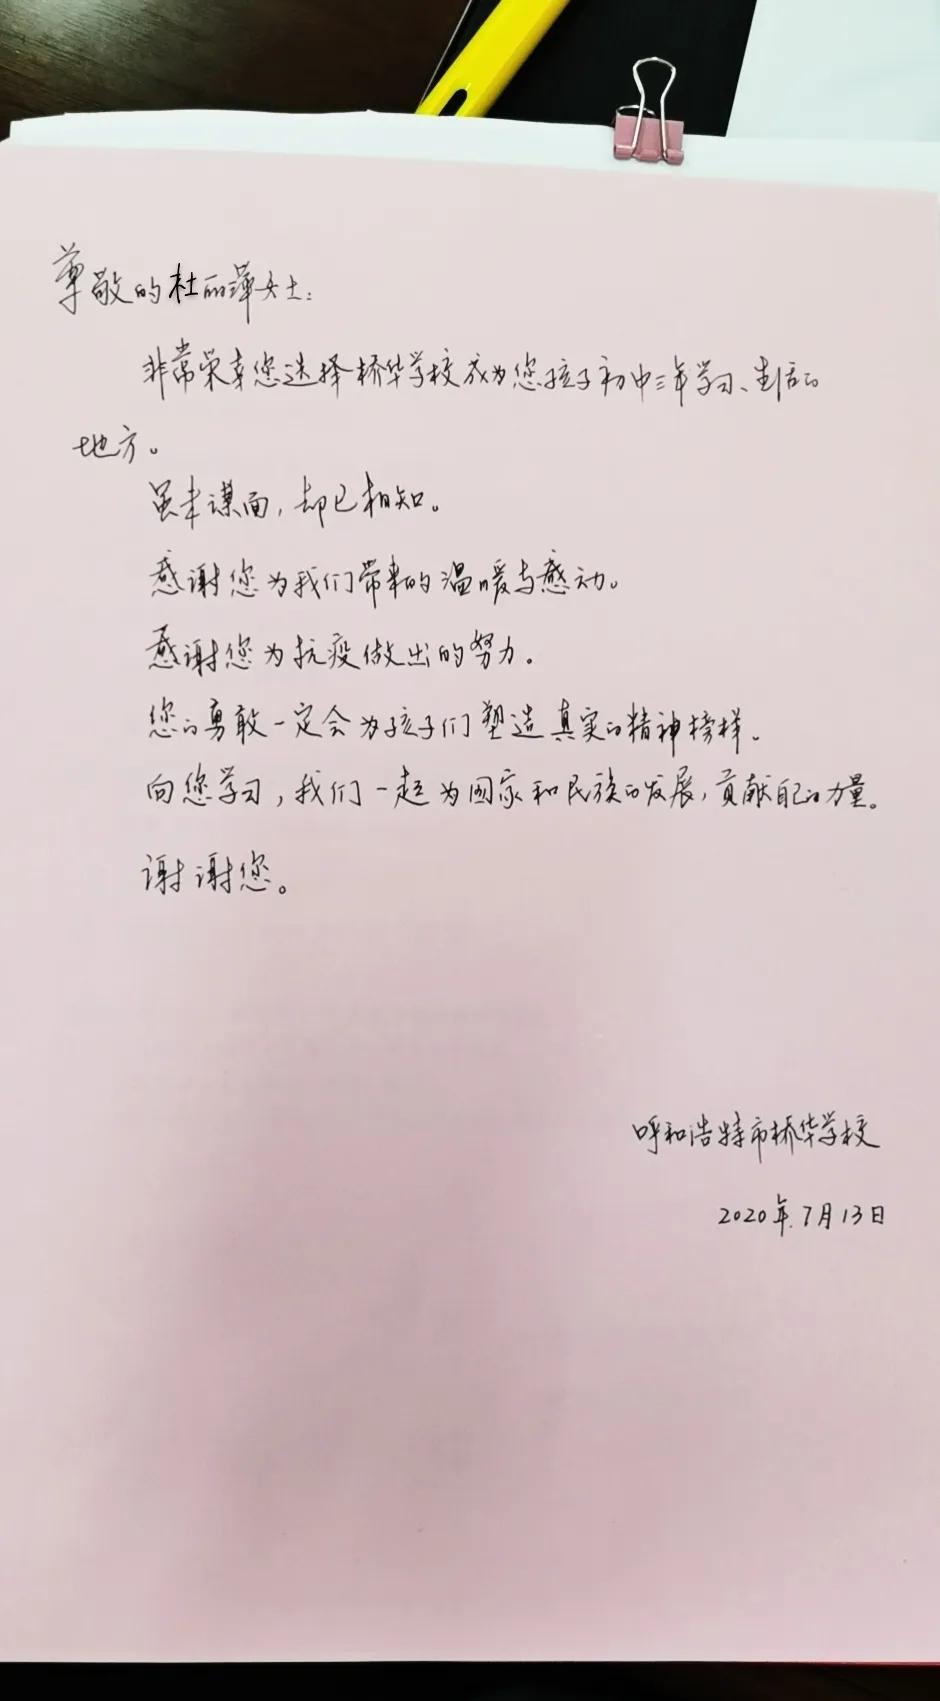 尊敬的杜丽萍女士：
非常荣幸您选择桥华学校成为您孩子初中三年学习、生活的
地方。
虽未谋面，却已相知。
感谢您为我们带来的温暖与感动。
感谢您为抗疫做出的努力。
您的勇敢一定会为孩子们塑造真实的精神榜样。
向您学习，我们一起为国家和民族的发展，贡献自己的力量。
谢谢您。
呼和浩特市桥华学校
2020年7月13日